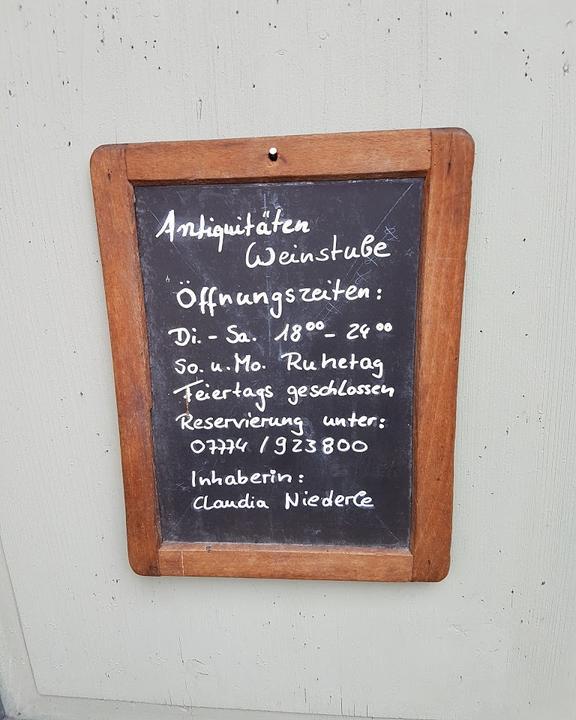 Antiquitäten
Weinstube
Öffnungszeiten:
Di. - Sa. 18⁰⁰ - 24⁰⁰
So. u. Mo. Ruhetag
Feiertags geschlossen
Reservierung unter:
07774 / 923800
Inhaberin:
Claudia Niederle